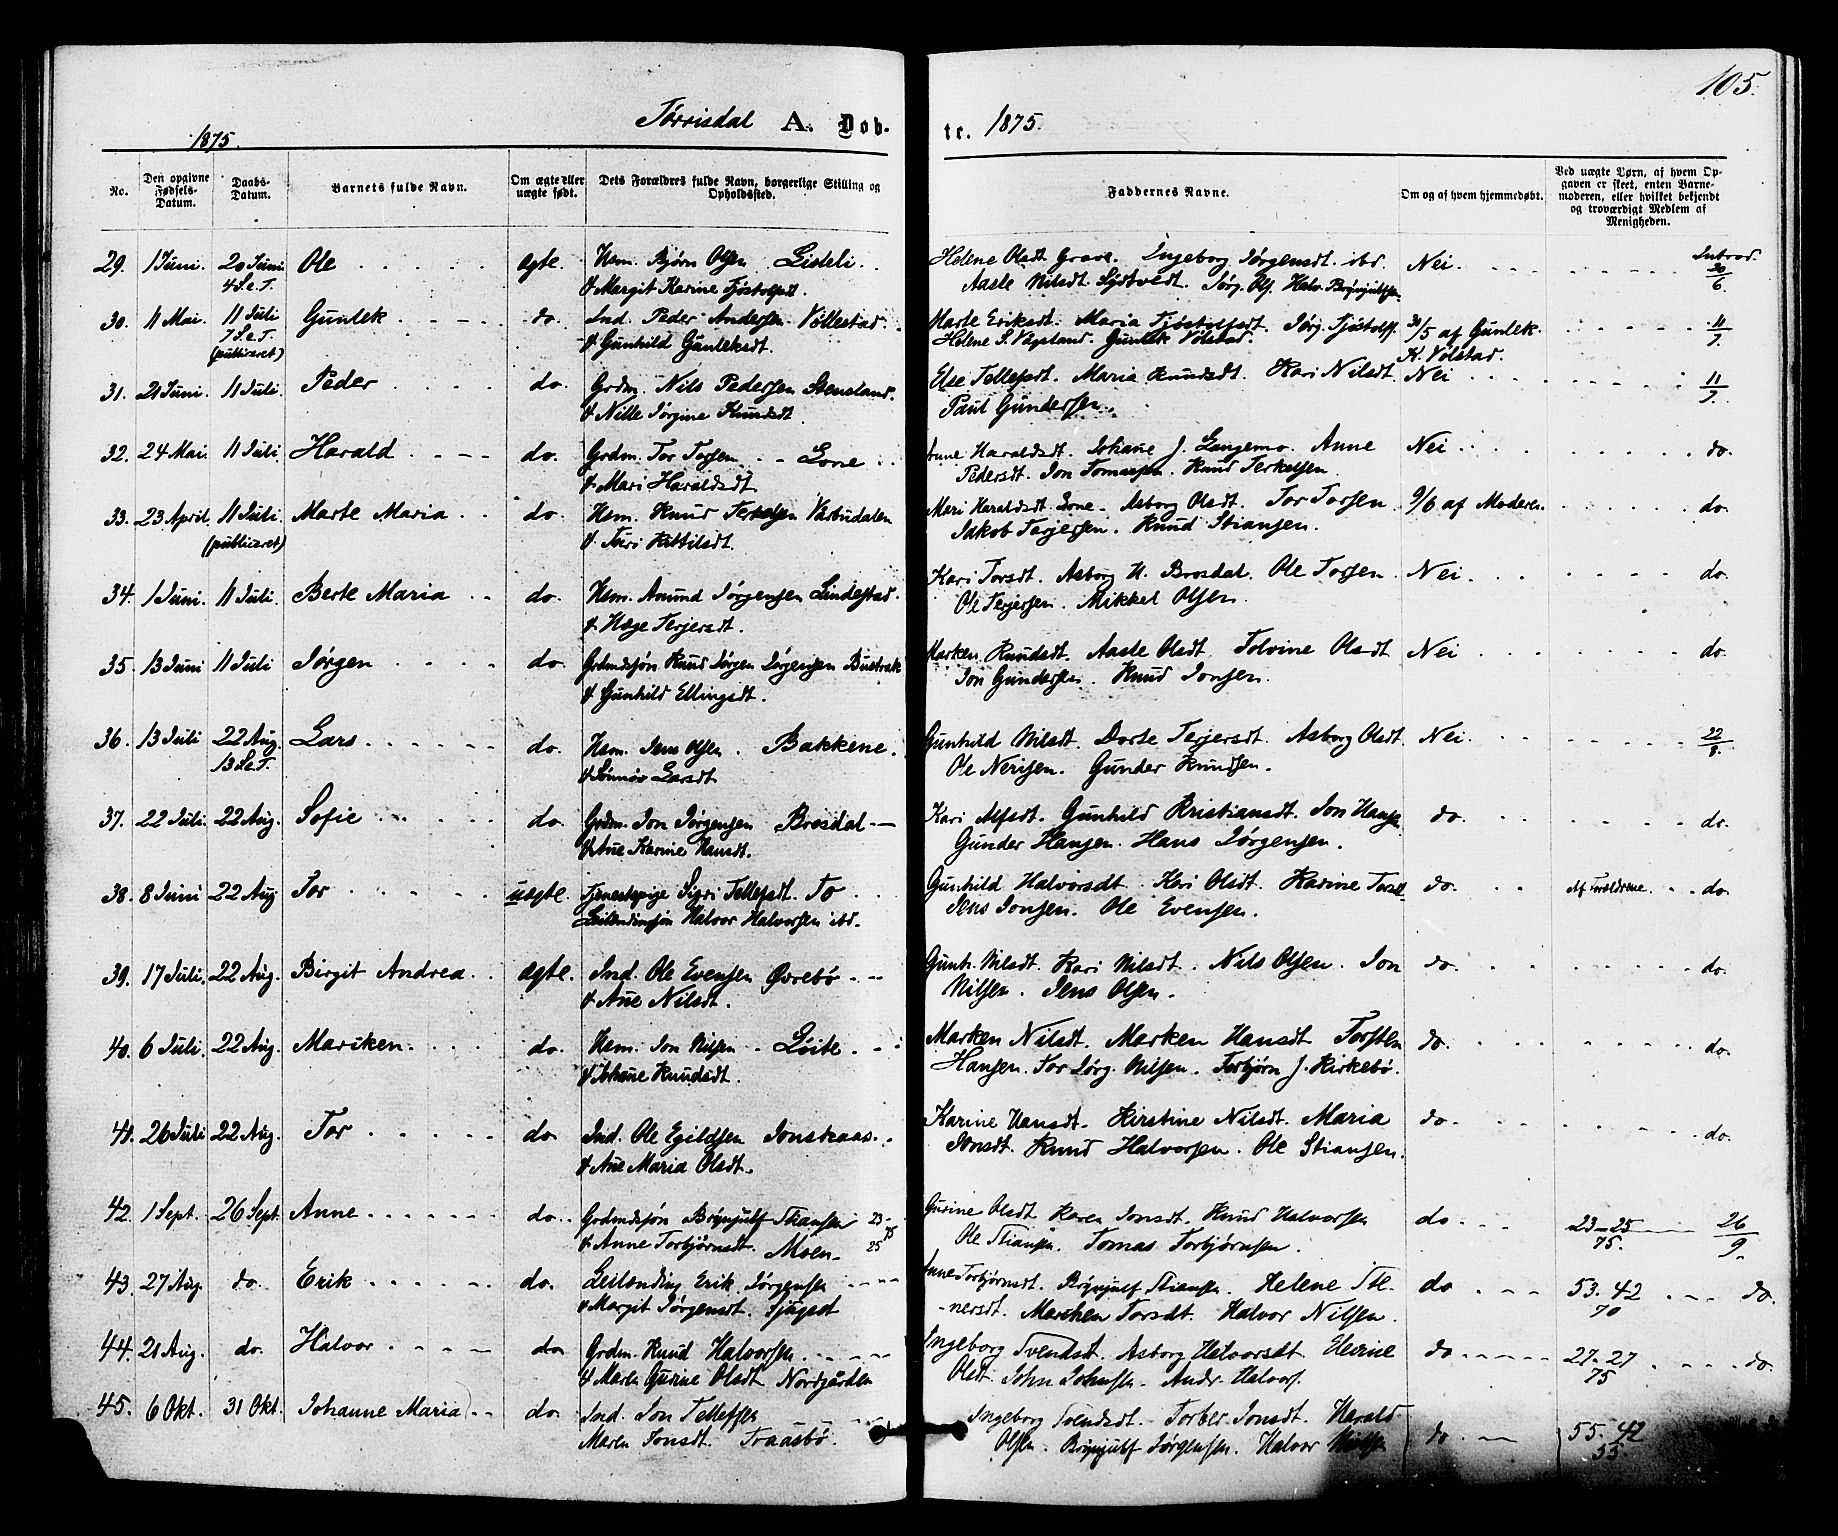 105.
Tørrisdal A. Døb-
te. 1875.
1875.
No.
Den opgivne Fødsels-Datum.
Daabs-Datum.
Barnets fulde Navn.
Om ægte eller uægte født.
Dets Forældres fulde Navn, borgerlige Stilling og Opholdssted.
Faddernes Navne.
Om og af hvem hjemmedøbt.
Ved uægte Børn, af hvem Opgaven er skeet, enten Barnemoderen, eller hvilket bekjendt og troværdigt Medlem af Menigheden.
29. 1 Juni. 20 Juni. Ole ægte. Hsm. Bjørn Olsen Lideli Helene Olsdt Grave. Ingeborg Jørgensdt. ibd. Nei. Introd. 20/6
4 S.e.T. & Margit Karine Tjøstolfsdt Aasle Nilsdt. Sydtvedt. Jørg. Ols. Halv. Brynjulfsen
30. 11 Mai. 11 Juli Gunlek do. Ind. Peder Andersen Vollestad. Marte Eriksdt. Maria Tjøstolfsdt. Jørg. Tjøstolfs. 30/5 af Gunlek 11/7.
7 S.e.T. (publiceret) & Gunhild Gunleksdt. Helene S. Vägsland. Gunlek Volstad. K. Volstad.
31. 21 Juni. 11 Juli. Peder do. Grdm. Nils Pedersen Stensland. Else Tellefsdt. Maria Knudsdt. Kari Nilsdt. Nei 11/7.
& Nille Jørgine Knudsdt. Paul Gundersen.
32. 24 Mai. 11 Juli. Harald do. Grdm. Tor Torsen Lone Anne Haraldsdt. Johane J. Langemo. Anne Nei do.
& Mari Haraldsdt. Pedersdt. Jon Tomassen. Knud Terkelsen.
33. 23 April. 11 Juli. Marte Maria do. Hsm. Knud Terkelsen Väsbudalen Mari Haraldsdt Lone. Asborg Olsdt. Tor Torsen 9/6 af Moderen. do.
(publiceret) & Turi Kittilsdt. Jakob Terjessen. Knud Stiansen.
34. 1 Juni. 11 Juli. Berte Maria do. Hsm. Anund Jørgensen Lindestad. Kari Torsdt. Asborg H. Brosdal. Ole Torsen. Nei. do.
& Hæge Terjersdt. Ole Terjersen. Mikkel Olsen.
35. 13 Juni 11 Juli Jørgen do. Grdmdsjøn Knud Jørgen Jørgensen Bustrak Marken Knudsdt. Aasle Olsdt. Tolvine Olsdt Nei do.
& Gunhild Ellingsdt. Jon Gundersen. Knud Jonsen.
36. 13 Juli 22 Aug. Lars do. Hsm. Jens Olsen. Bakkene. Gunhild Nilsdt. Dorte Terjersdt. Asborg Olsdt. Nei. 22/8.
13 S.e.T. & Sünniv Larsdt. Ole Nerisen. Gunder Knudsen.
37. 22 Juli. 22 Aug. Sofie do. Grdm. Jon Jørgensen Brosdal Kari Alfsdt. Gunhild Kristiansdt. Jon Hansen do. do.
& Ane Karine Hansdt. Gunder Hansen. Hans Jørgensen.
38. 8 Juni 22 Aug Tor uægte. Tjenestepige Sigri Tellefsdt. To Gunhild Halvorsdt. Kari Olsdt. Karine do. Af Forældrene. do.
Leilendingsøn Halvor Halvorsen ibd. Jens Jonsen. Ole Evensen.
39. 17 Juli. 22 Aug. Birgit Andrea ægte. Ind. Ole Evensen Øvrebø Gunh. Nilsdt. Kari Nilsdt. Nils Olsen. Jon do. do.
& Ane Nilsdt. Nilsen. Jens Olsen.
40. 6 Juli. 22 Aug. Mariken do. Hsm. Jon Nilsen Løite Marken Nilsdt. Marken Hansdt Torsten do. do.
& Johane Knudsdt. Hansen. Tor Jørg. Nilsen. Torbjørn J. Kirkebø.
41. 26 Juli 22 Aug. Tor do. Ind. Ole Egildsen Jonskaas. Karine Hansdt. Kirstine Nilsdt. Maria do. do.
& Ane Maria Olsdt. Jonsdt. Knud Halvorsen. Ole Stiansen.
42. 1 Sept. 26 Sept. Anne do. Grdmdsjøn Brynjulf Stiansen 23- 25 75 Gurine Olsdt Karen Jonsdt. Knud Halvorsen do. 23-25 26/9.
& Anne Torbjørnsdt. Moen. Ole Stiansen. Tomas Torbjørnsen. 75.
43. 27 Aug. do. Erik do. Leilænding Erik Jørgensen Anne Torbjørnsdt. Brynjulf Stiansen. Helene Ste- do 53. 42 do.
& Margit Jørgensdt. -nersdt. Marchen Torsdt. Halvor Nilsen. 70
44. 21 Aug. do. Halvor do Grdm. Knud Halvorsen Ingeborg Svendsdt. Asborg Halvorsdt. Elevine do. 27-27 do.
& Maren Gurine Olsdt Nordgården Olsdt. John Johnsen. Andr. Halvors. 75
45. 6 Okt. 31 Okt. Johanne Maria do. Ind. Jon Tellefsen Ingeborg Svendsdt. Torber Jonsdt. Harald do. 55. 42
Maren Jonsdt. Traasbø. Olsen. Brynjulf Jørgensen. Halvor 55.